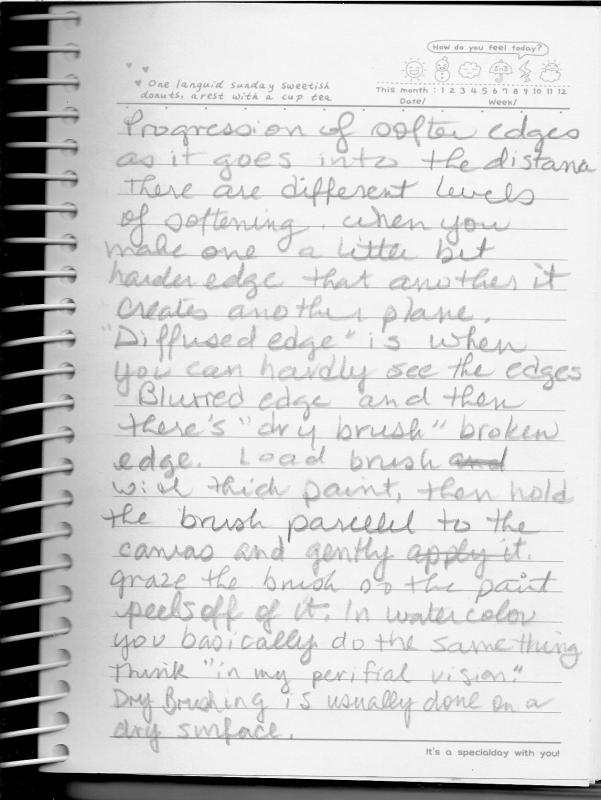 How do you feel today?
One languid sunday sweetish
donuts, a rest with a cup tea
This month : 1 2 3 4 5 6 7 8 9 10 11 12
Date/ Week/
Progression of softer edges
as it goes into the distana
There are different levels
of softening. When you
make one a little bit
harder edge that another it
creates another plane.
"Diffused edge" is when
you can hardly see the edges
Blurred edge and then
there's "dry brush" broken
edge. Load brush and
with thick paint, then hold
the brush parellel to the
canvas and gently apply it.
graze the brush so the paint
peels off of it. In watercolor
you basically do the same thing
Think "in my perifial vision."
Dry Brushing is usually done on a
dry surface.
It's a specialday with you!